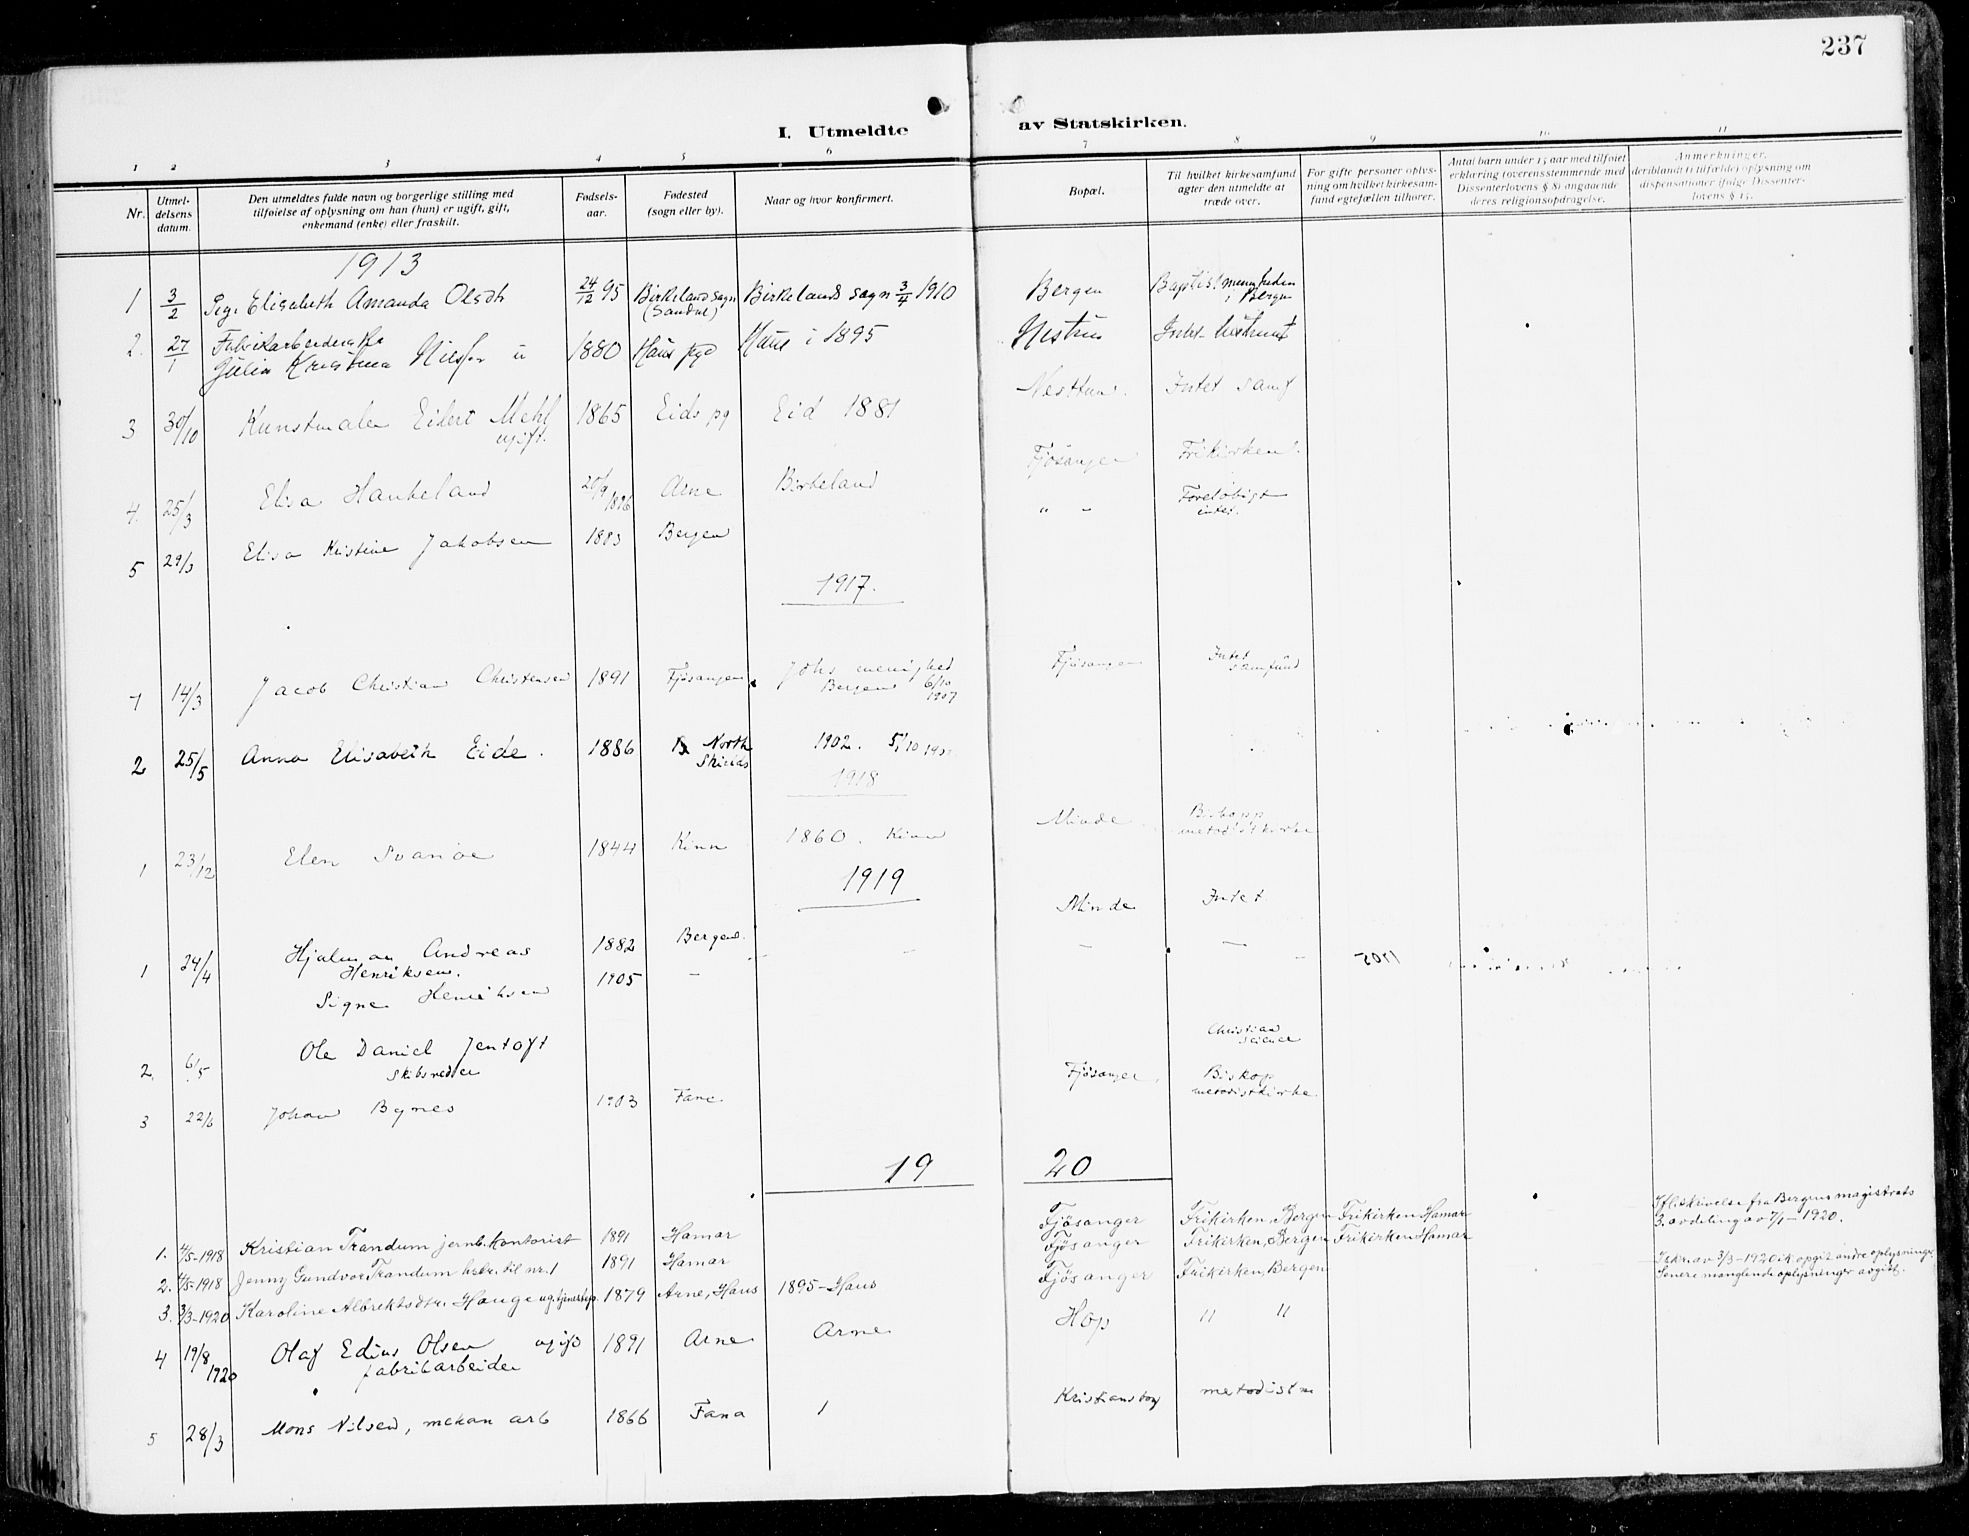 237
I. Utmeldte av Statskirken.
1 2 3 4 5 6 7 8 9 10 11
Nr.
Utmeldelsens datum.
Den utmeldtes fulde navn og borgerlige stilling med tilføielse af oplysning om han (hun) er ugift, gift, enkemand (enke) eller fraskilt.
Fødselsaar.
Fødested (sogn eller by).
Naar og hvor konfirmert.
Bopæl.
Til hvilket kirkesamfund agter den utmeldte at træde over.
For gifte personer oplysning om hvilket kirkesamfund egtefællen tilhører.
Antal barn under 15 aar med tilføiet erklæring (overensstemmende med Dissenterlovens § 8) angaaende deres religionsopdragelse.
Anmerkninger, deriblandt (i tilfælde) oplysning om dispensationer ifølge Dissenterlovens § 15.
1913
1 3/2 Pige Elisabeth Amanda Olsdtr 24/12 95 Birkeland sogn (Sandvi) Birkelands sogn 3/4 1910 Bergen Baptistmenigheden i Bergen
2. 27/1 Fabrikarbeiderske Julia Kristina Nilsen u 1880 Haus pgd Haus i 1895 Nestun Intet bestemt
3 30/10 Kunstmaler Eilert Mehl ugift. 1865 Eids pg Eid 1881 Nesttun. Intet samf
4. 25/3 Elisa Haukeland 20/9 1896 Arne Birkeland Fjösanger Frikirken.
5 29/3 Elisa Kristine Jakobsen 1883 Bergen " - Foreløbigt intet.
1917.
1 14/3 Jacob Christian Christensen 1891 Fjösanger Johs menighed Bergen 6/10 1907 Fjösanger Intet samfund
2 25/5 Anna Elisabeth Eide. 1886 North Shields 1902. 5/10
1918
1 23/12 Elen Svanøe 1844 Kinn 1860. Kinn Minde Biskopp metodistkirke
1919
1 24/4 Hjalmar Andreas Henriksen. 1882 Bergen. Minde Intet.
Signe Henriksen 1905 - - -
2. 6/5 Ole Daniel Jentoft Skibsreder Christian science
3 22/6 Johan Bynes 1903 Fane Fjösanger Biskop metodistkirke.
1920
1. 4/5-1918 Kristian Trandum jernb.kontorist 1891 Hamar Fjösanger Frikirken, Bergen Frikirken Hamar Ifl. skrivelse fra Bergens magistrats 3. avdeling av 7/1-1920.
2. 4/5-1918 Jenny Gundvor Trandum hstr. til nr. 1 1891 Hamar Fjösanger Frikirken, Bergen Frikirken Hamar
3. 3/3-1920 Karoline Albrektsdtr. Hauge ug. tjenestep. 1879 Arne, Haus 1895-Haus Fjösanger Frikirken, Bergen Skr. av 3/3-1920 ik opgit andre oplysninger. Senere manglende oplysninger avgitt.
4 19/8 1920 Olaf Edius Olsen ugift fabrikarbeider 1891 Arne Arne Hop " "
5 28/3 Mons Nilsen, mekan arb 1866 Fana 1 Kristiansborg metodistm